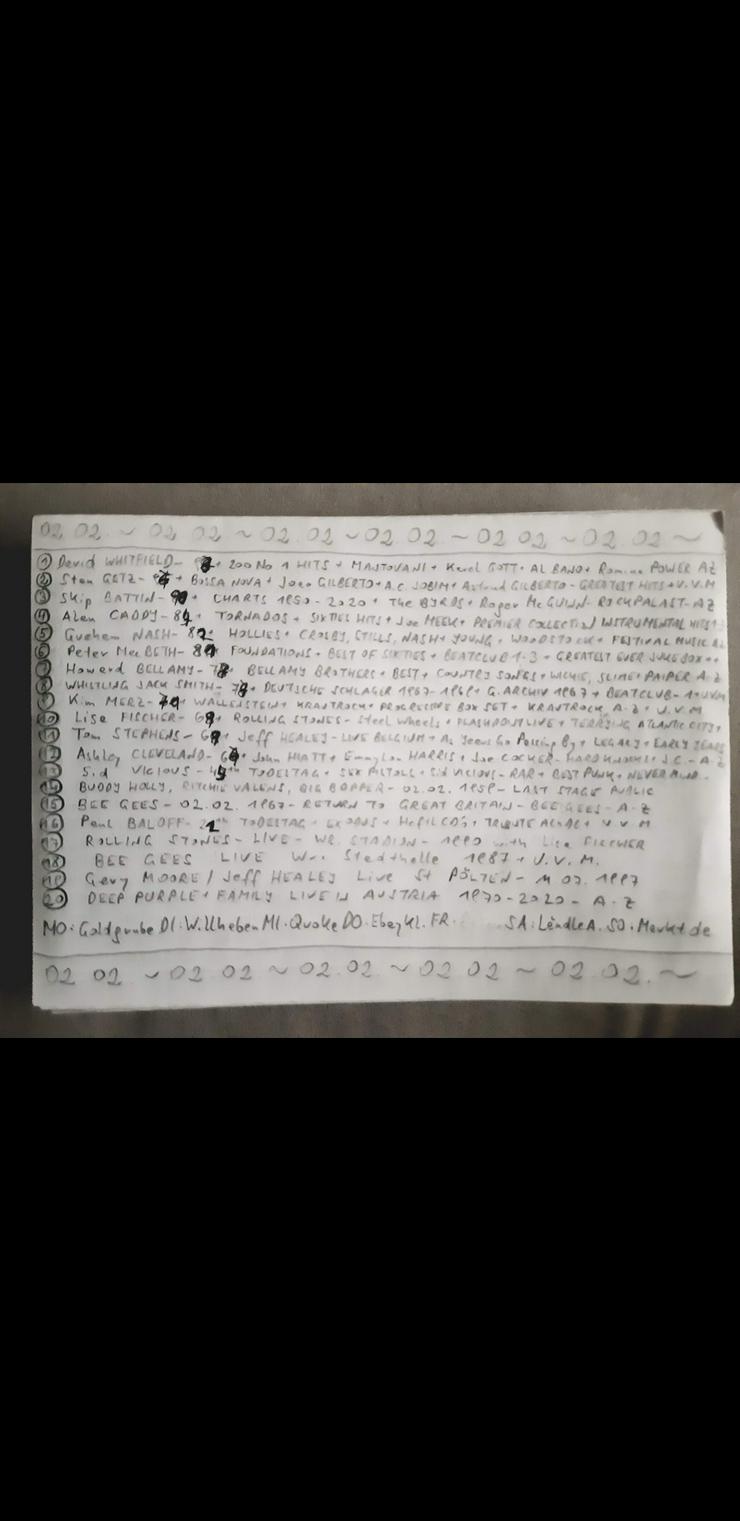 02 02. ~ 02 02 ~ 02.02 ~ 02.02. ~ 02 02 ~ 02.02. ~
① David WHITFIELD- + 200 No 1 HITS + MANTOVANI + Karel GOTT + AL BANO + Romina POWER AZ
② Stan GETZ- + BOSSA NOVA + Joao GILBERTO + A.C. JOBIM + Astrud GILBERTO - GREATEST HITS + U.V.M
③ Skip BATTIN- + CHARTS 1950-2020 + The BYRDS + Roger McGUINN- ROCKPALAST- AZ
④ Alan CADDY- 84 + TORNADOS + SIXTIES HITS + Joe MEEK + PREMIER COLLECTION INSTRUMENTAL HITS
⑤ Graham NASH- 82 + HOLLIES + CROSBY, STILLS, NASH + YOUNG + WOODSTOCK + FESTIVAL MUSIC
⑥ Peter MacBETH- + FOUNDATIONS + BEST OF SIXTIES + BEATCLUB 1-3 + GREATEST EVER JUKEBOX ++
⑦ Howard BELLAMY- + BELLAMY BROTHERS + BEST + COUNTRY SONGS + WICHIE, SLIME + PAIPER A-Z
⑧ WHISTLING JACK SMITH- + DEUTSCHE SCHLAGER 1967-1969 + G.ARCHIV 1967 + BEATCLUB-
⑨ Kim MERZ- + WALLENSTEIN + KRAUTROCK + PROGRESSIVE BOX SET + KRAUTROCK A-Z + U.V.M
⑩ Lisa FISCHER- + ROLLING STONES- Steel Wheels + FLASHPOINT LIVE + TERRYING ATLANTIC CITY +
⑪ Tom STEPHENS- + Jeff HEALEY- LIVE BELGIUM + As Years Go Passing By + LEGACY + EARLY YEARS
⑫ Ashley CLEVELAND- + John HIATT + Emmylou HARRIS + Joe COCKER- HARD KNOCKS + J.C.- A-Z
⑬ Sid VICIOUS- TODESTAG + SEX PISTOLS + Sid VICIOUS- RAR + BEST PUNK + NEVER MIND-
⑭ BUDDY HOLLY, RITCHIE VALENS, BIG BOPPER- 02.02. 1959- LAST STAGE PUBLIC
⑮ BEE GEES- 02.02. 1967- RETURN TO GREAT BRITAIN- BEE GEES- A-Z
⑯ Paul BALOFF- TODESTAG + EXODUS + TRIBUTE + U V M
⑰ ROLLING STONES- LIVE- WR. STADION- 1990 with Lisa FISCHER
⑱ BEE GEES LIVE Wr. Stadthalle 1987 + U.V.M.
⑲ Gary MOORE / Jeff HEALEY Live St PÖLTEN- 11 07. 1997
⑳ DEEP PURPLE + FAMILY LIVE IN AUSTRIA 1970-2020- A-Z
MO: Goldgrube DI: Willheben MI. Quoke DO. Ebay Kl. FR. SA: LändleA. SO. Markt de
02 02 ~ 02 02 ~ 02.02. ~ 02 02 ~ 02 02. ~